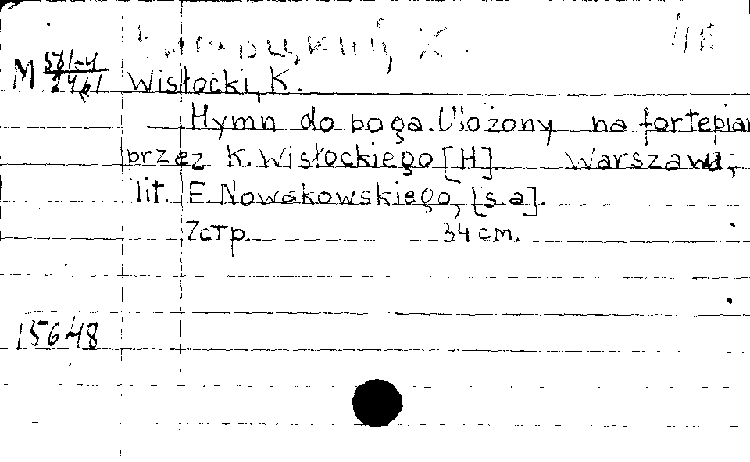 М 581-4
Wisłocki, K.
Hymn do boga. Ułożony na fortepian
przez K. Wisłockiego [H]. Warszawa,
lit. E. Nowakowskiego, [s.a].
7стр. 34 cm.
15648